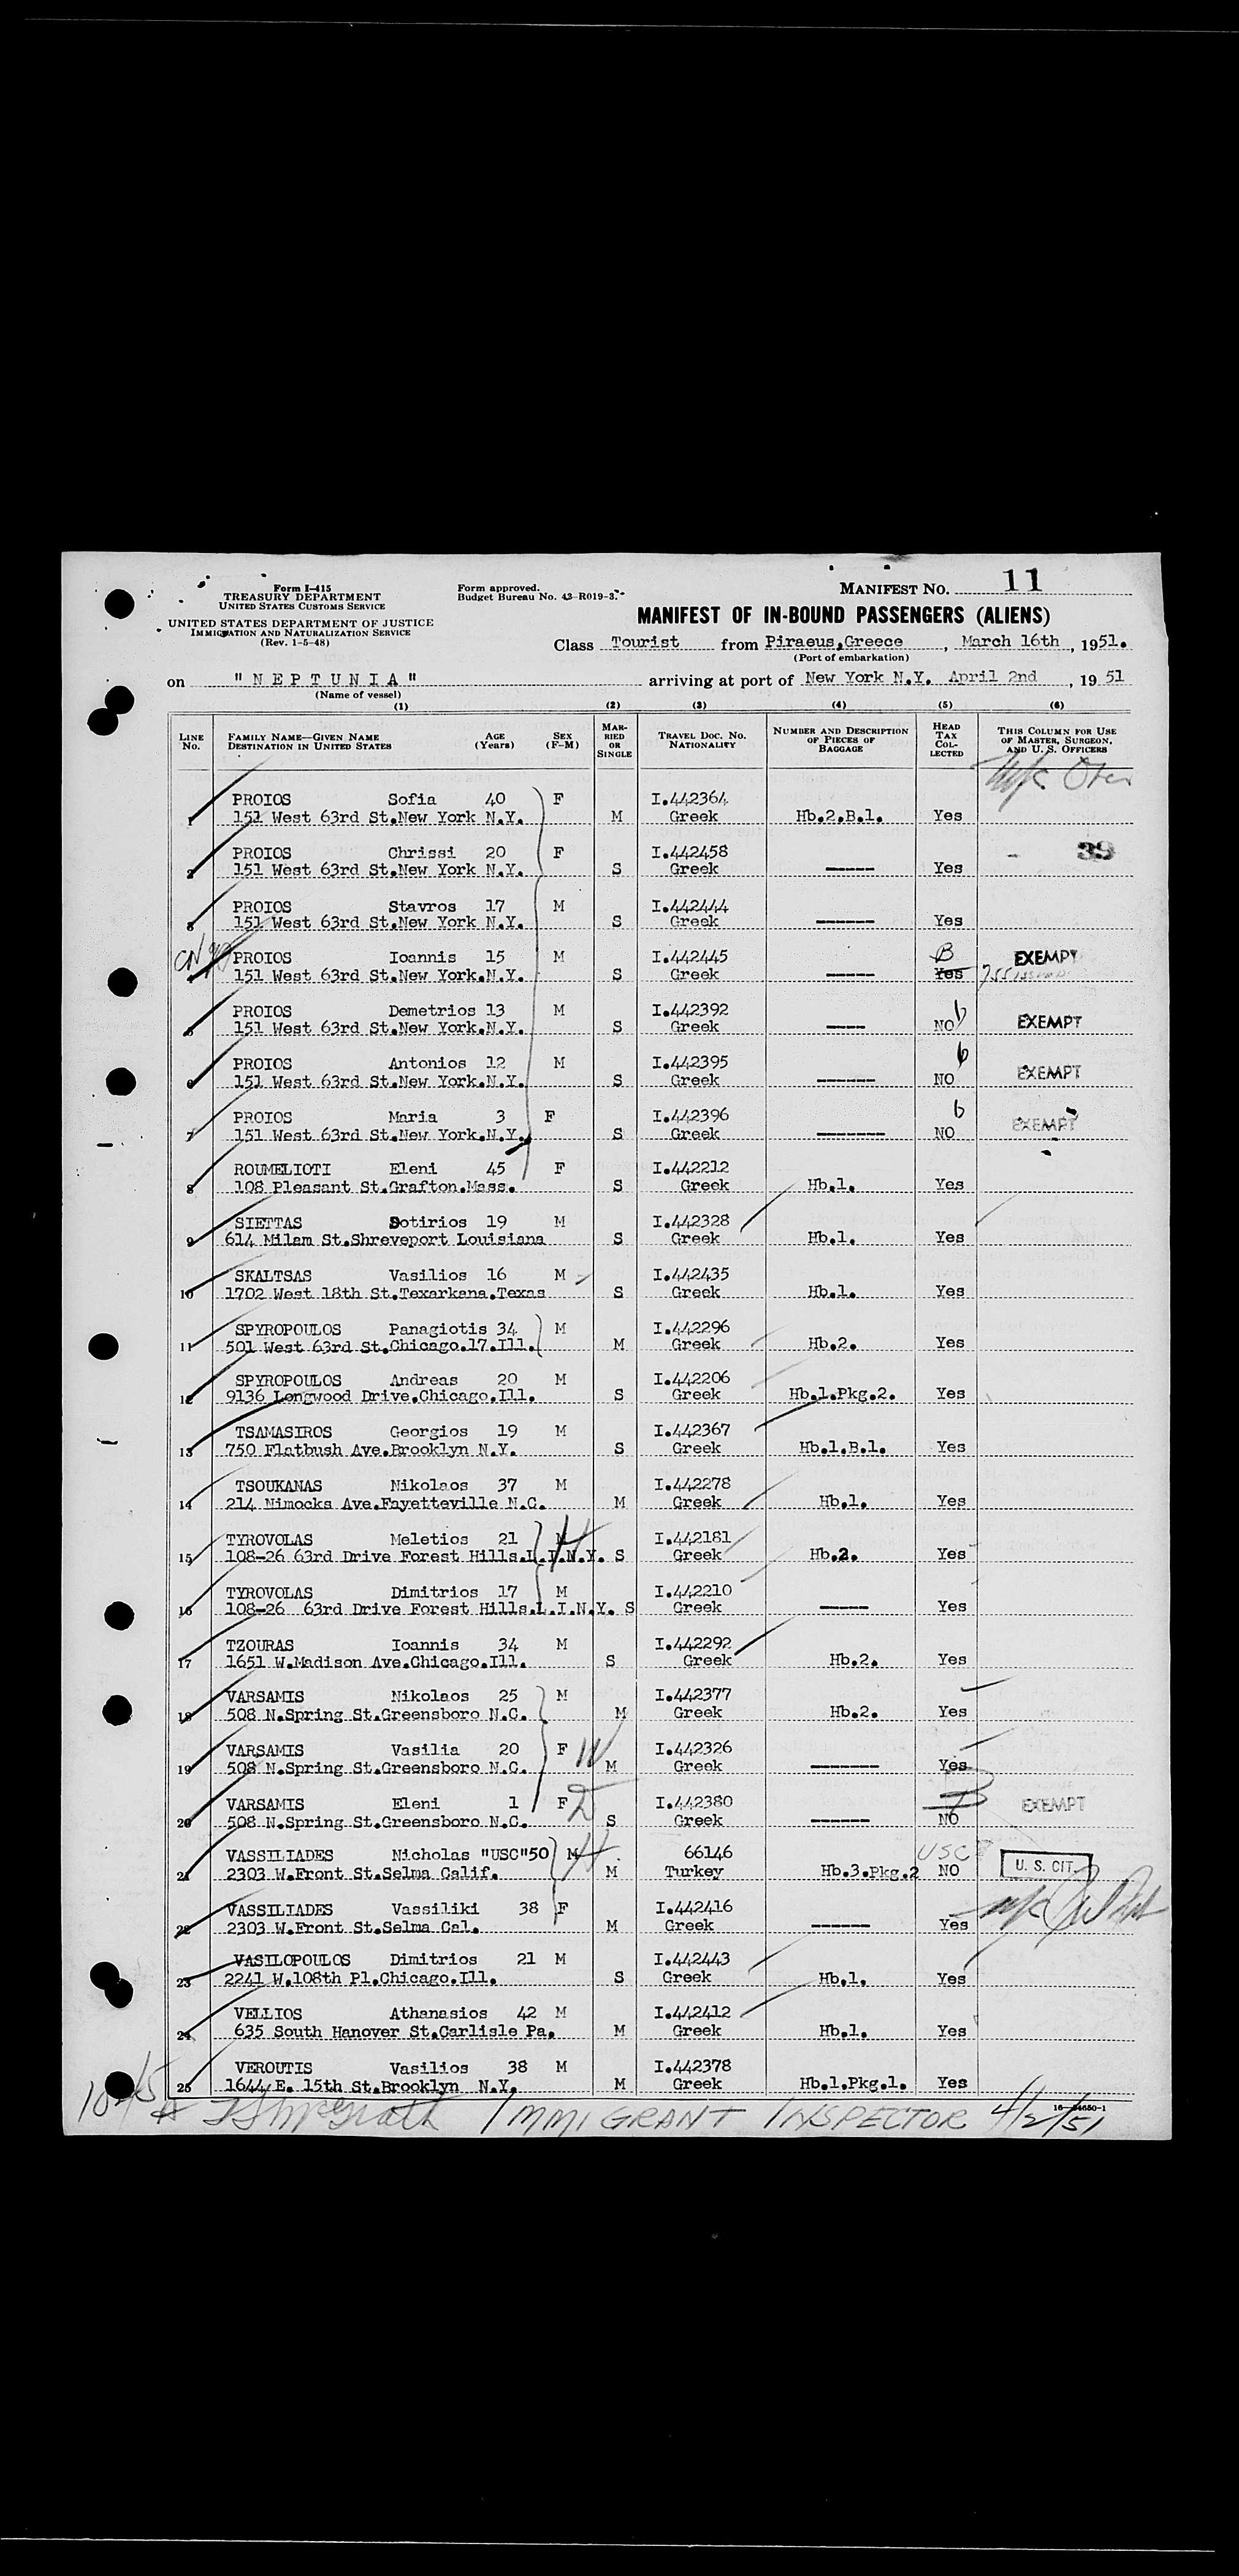 Form I-415
TREASURY DEPARTMENT
UNITED STATES CUSTOMS SERVICE
UNITED STATES DEPARTMENT OF JUSTICE
IMMIGRATION AND NATURALIZATION SERVICE
(Rev. 1-5-48)
Form approved.
Budget Bureau No. 43-R019-3.
MANIFEST NO. 11
MANIFEST OF IN-BOUND PASSENGERS (ALIENS)
Class Tourist from Piraeus,Greece, March 16th, 1951.
(Port of embarkation)
on "NEPTUNIA" arriving at port of New York N.Y. April 2nd, 19 51
(Name of vessel)
(1) (2) (3) (4) (5) (6)
LINE No. FAMILY NAME—GIVEN NAME DESTINATION IN UNITED STATES AGE (Years) SEX (F-M) MARRIED OR SINGLE TRAVEL DOC. NO. NATIONALITY NUMBER AND DESCRIPTION OF PIECES OF BAGGAGE HEAD TAX COLLECTED THIS COLUMN FOR USE OF MASTER, SURGEON, AND U. S. OFFICERS
PROIOS Sofia 40 F I.442364
1 151 West 63rd St.New York N.Y. M Greek Hb.2.B.1. Yes
PROIOS Chrissi 20 F I.442458 39
2 151 West 63rd St.New York N.Y. S Greek ------ Yes
PROIOS Stavros 17 M I.442444
3 151 West 63rd St.New York N.Y. S Greek ------ Yes
PROIOS Ioannis 15 M I.442445 B EXEMPT
4 151 West 63rd St.New York.N.Y. S Greek ------ Yes
PROIOS Demetrios 13 M I.442392 b
5 151 West 63rd St.New York.N.Y. S Greek ---- NO EXEMPT
PROIOS Antonios 12 M I.442395 b
6 151 West 63rd St.New York.N.Y. S Greek ------ NO EXEMPT
PROIOS Maria 3 F I.442396 b
7 151 West 63rd St.New York.N.Y. S Greek ------- NO EXEMPT
ROUMELIOTI Eleni 45 F I.442212
8 108 Pleasant St.Grafton.Mass. S Greek Hb.1. Yes
SIETTAS Sotirios 19 M I.442328
9 614 Milam St.Shreveport Louisiana S Greek Hb.1. Yes
SKALTSAS Vasilios 16 M I.442435
10 1702 West 18th St.Texarkana.Texas S Greek Hb.1. Yes
SPYROPOULOS Panagiotis 34 M I.442296
11 501 West 63rd St.Chicago.17.Ill. M Greek Hb.2. Yes
SPYROPOULOS Andreas 20 M I.442206
12 9136 Longwood Drive.Chicago.Ill. S Greek Hb.1.Pkg.2. Yes
TSAMASIROS Georgios 19 M I.442367
13 750 Flatbush Ave.Brooklyn N.Y. S Greek Hb.1.B.1. Yes
TSOUKANAS Nikolaos 37 M I.442278
14 214 Nimocks Ave.Fayetteville N.C. M Greek Hb.1. Yes
TYROVOLAS Meletios 21 M I.442181
15 108-26 63rd Drive Forest Hills.L.I.N.Y. S Greek Hb.2. Yes
TYROVOLAS Dimitrios 17 M I.442210
16 108-26 63rd Drive Forest Hills.L.I.N.Y. S Greek ----- Yes
TZOURAS Ioannis 34 M I.442292
17 1651 W.Madison Ave.Chicago.Ill. S Greek Hb.2. Yes
VARSAMIS Nikolaos 25 M I.442377
18 508 N.Spring St.Greensboro N.C. M Greek Hb.2. Yes
VARSAMIS Vasilia 20 F W I.442326
19 508 N.Spring St.Greensboro N.C. M Greek ------- Yes
VARSAMIS Eleni 1 F D I.442380 EXEMPT
20 508 N.Spring St.Greensboro N.C. S Greek ------ NO
VASSILIADES Nicholas "USC"50 M H 66146 USC
21 2303 W.Front St.Selma Calif. M Turkey Hb.3.Pkg.2 NO U. S. CIT.
VASSILIADES Vassiliki 38 F I.442416
22 2303 W.Front St.Selma Cal. M Greek ------ Yes
VASILOPOULOS Dimitrios 21 M I.442443
23 2241 W.108th Pl.Chicago.Ill. S Greek Hb.1. Yes
VELLIOS Athanasios 42 M I.442412
24 635 South Hanover St.Carlisle Pa. M Greek Hb.1. Yes
VEROUTIS Vasilios 38 M I.442378
25 1644 E. 15th St.Brooklyn N.Y. M Greek Hb.1.Pkg.1. Yes
IMMIGRANT INSPECTOR 4/2/51